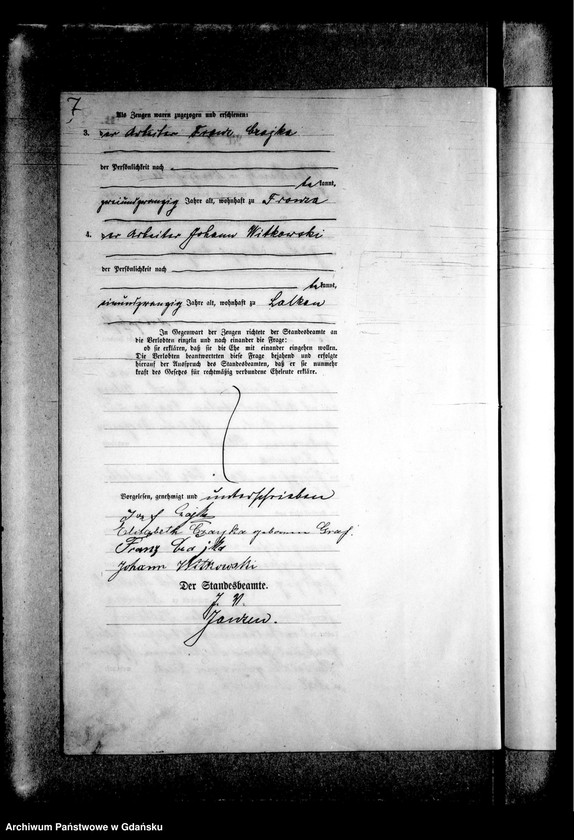 7
Als Zeugen waren zugezogen und erschienen:
3. der Arbeiter Franz Czajka
der Persönlichkeit nach
be kannt,
zweiundzwanzig Jahre alt, wohnhaft zu Fronza
4. der Arbeiter Johann Witkowski
der Persönlichkeit nach
be kannt,
einundzwanzig Jahre alt, wohnhaft zu
In Gegenwart der Zeugen richtete der Standesbeamte an
die Verlobten einzeln und nach einander die Frage:
ob sie erklären, daß sie die Ehe mit einander eingehen wollen.
Die Verlobten beantworteten diese Frage bejahend und erfolgte
hierauf der Ausspruch des Standesbeamten, daß er sie nunmehr
kraft des Gesetzes für rechtmäßig verbundene Eheleute erkläre.
Vorgelesen, genehmigt und unterschrieben
Elisabeth Czajka geborenen Graf.
Franz Czajka
Johann Witkowski
Der Standesbeamte.
J. V.
Janzen.
Archiwum Państwowe w Gdańsku